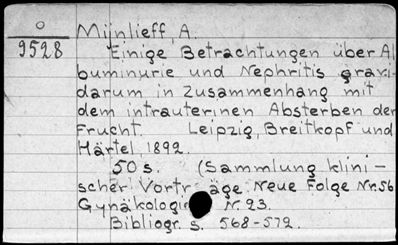 O
9528
Mijnlieff, A.
Einige Betrachtungen über Al
buminurie und Nephritis gravi-
darum in Zusammenhang mit
dem intrauterinen Absterben der
Frucht. Leipzig, Breitkopf und
Härtel, 1892.
50 s. (Sammlung klini-
scher Vorträge Neue Folge Nr. 56
Gynäkologie Nr. 23.
Bibliogr. s. 568-572.